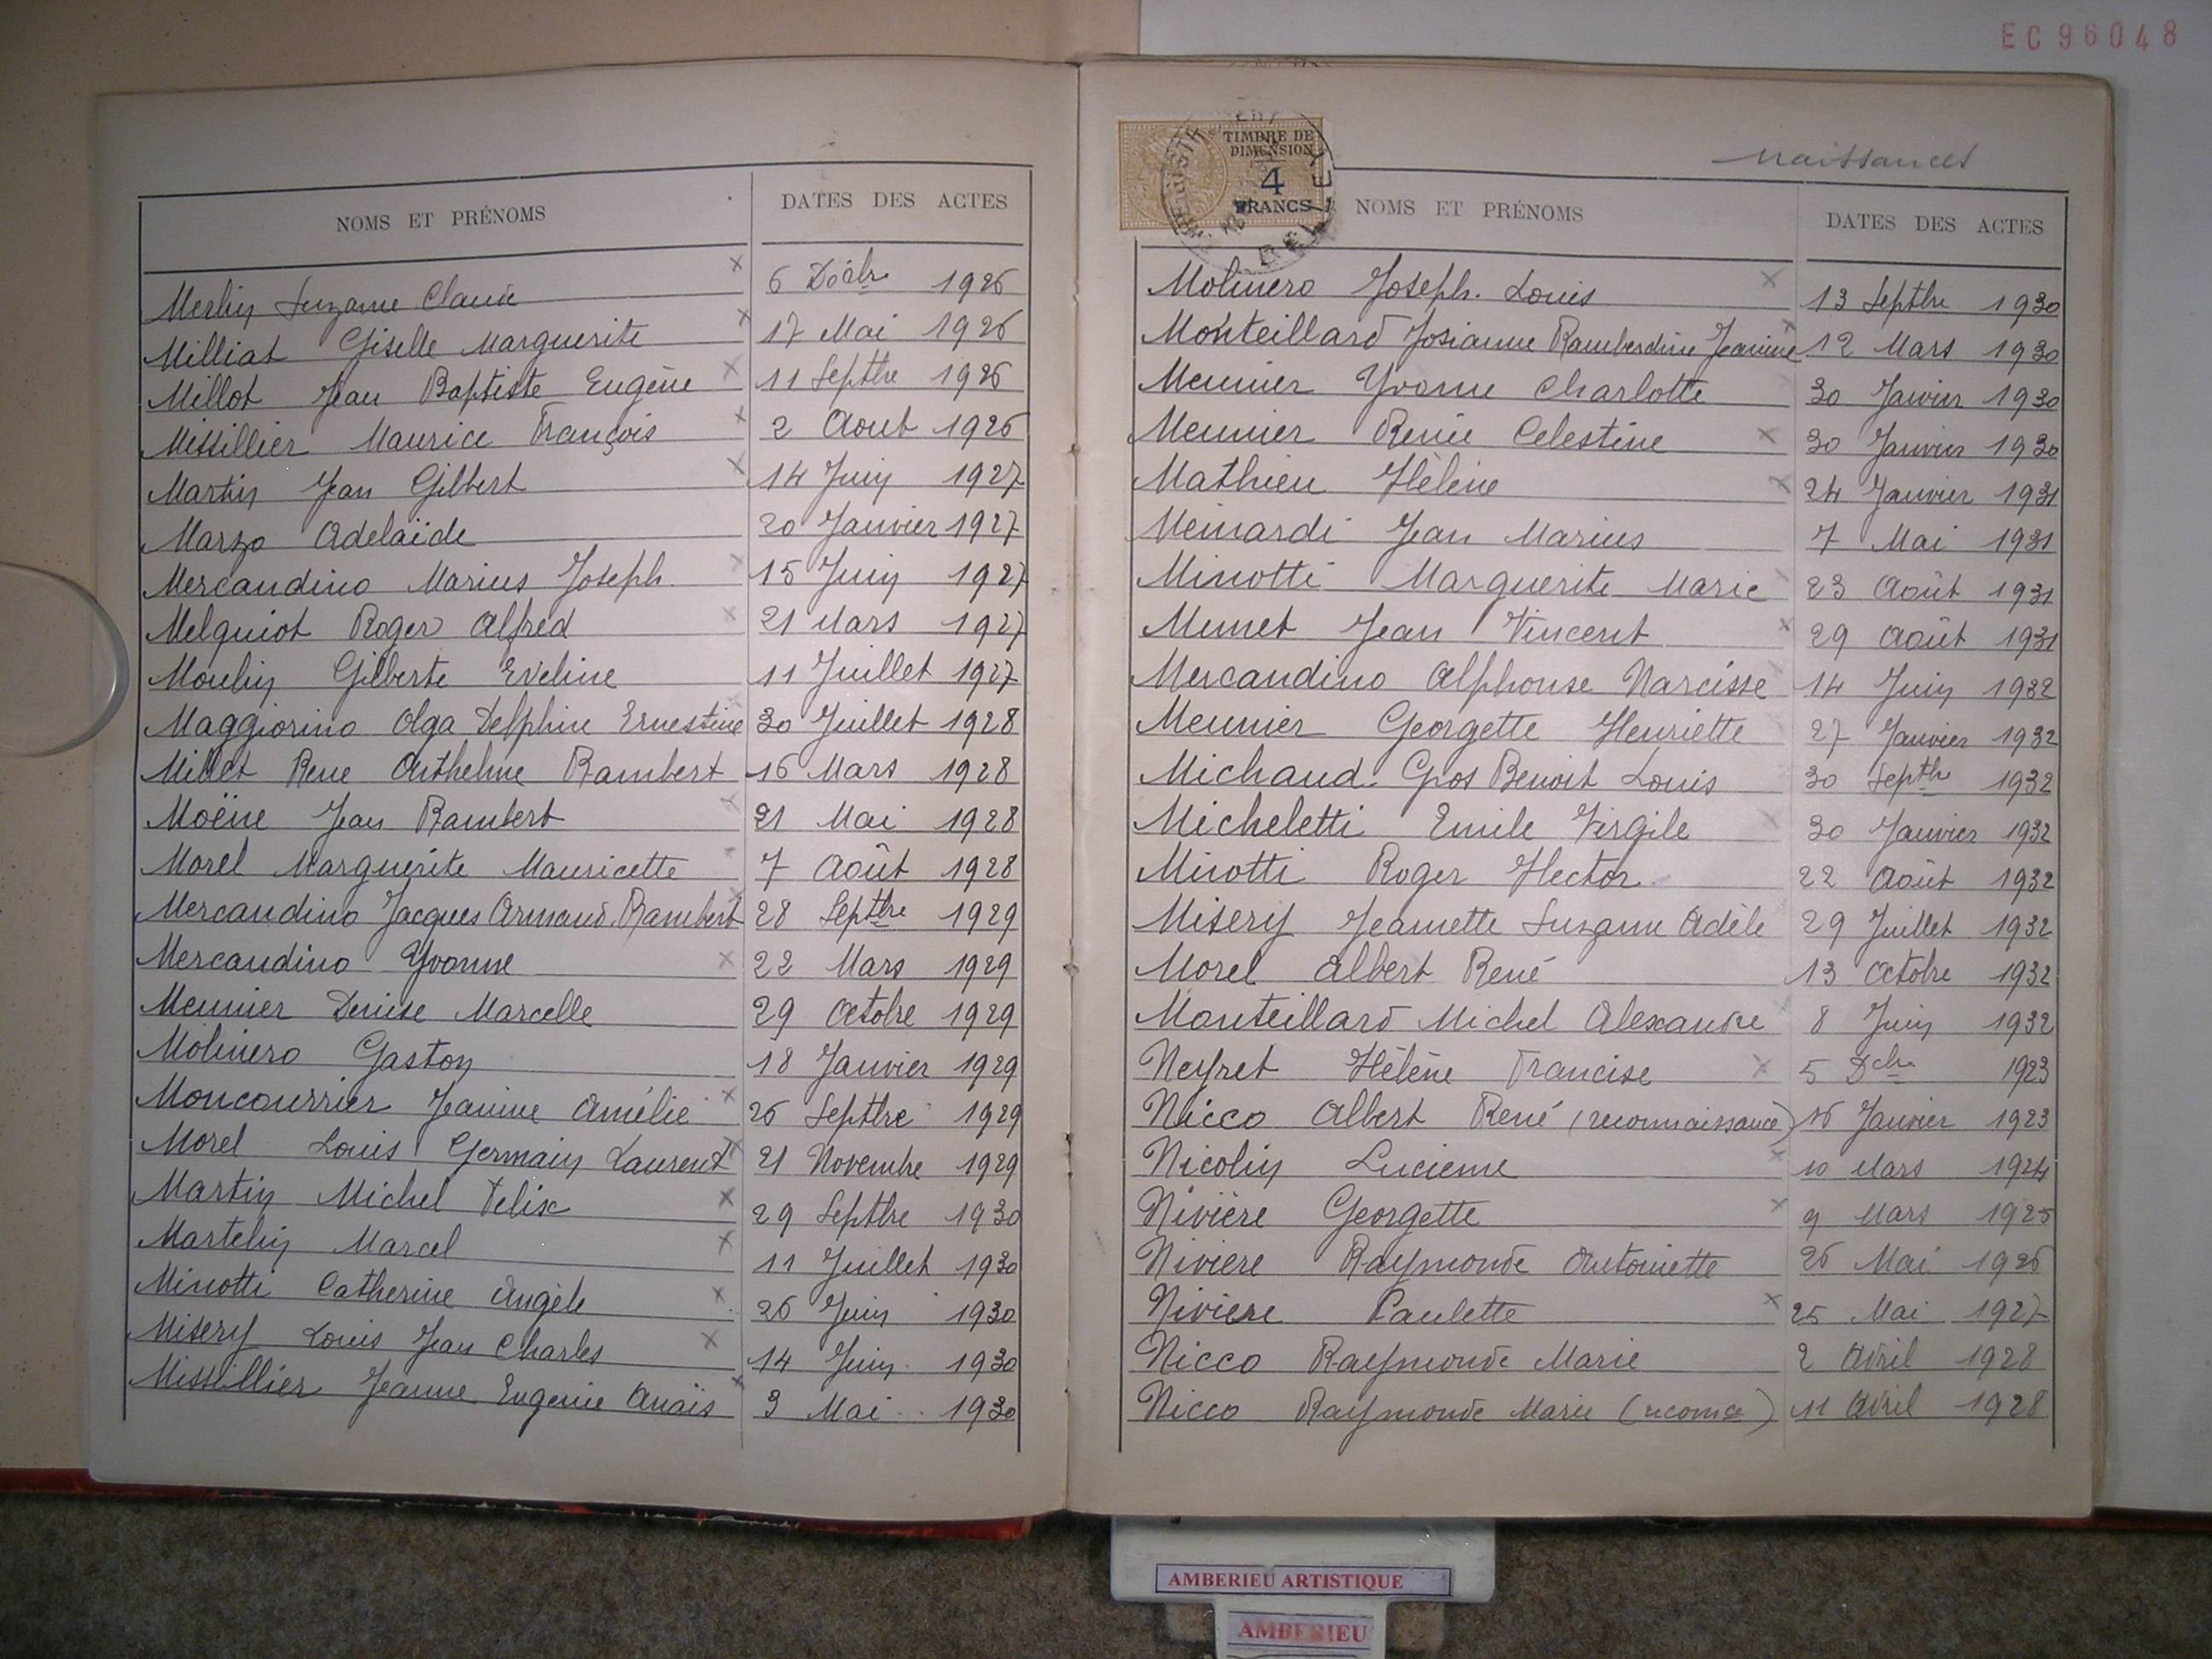 EC96048
NOMS ET PRÉNOMS DATES DES ACTES
Merlin Suzanne Claude × 6 Décbre 1926
Milliat Giselle Marguerite × 17 Mai 1926
Millot Jean Baptiste Eugène × 11 Septbre 1926
Missillier Maurice François × 2 Aout 1926
Martin Jean Gilbert × 14 Juin 1927
Marzo Adelaïde 20 Janvier 1927
Mercandino Marius Joseph × 15 Juin 1927
Melquiot Roger Alfred × 21 Mars 1927
Moulin Gilberte Eveline 11 Juillet 1927
Maggiorino Olga Delphine Ernestine 30 Juillet 1928
Millet Rene Anthelme Rambert 16 Mars 1928
Moëne Jean Rambert × 21 Mai 1928
Morel Marguerite Mauricette 7 Août 1928
Mercandino Jacques Armand Rambert × 28 Septbre 1929
Mercandino Yvonne × 22 Mars 1929
Meunier Denise Marcelle 29 Octobre 1929
Molinero Gaston 18 Janvier 1929
Moncourrier Jeanine Amélie × 26 Septbre 1929
Morel Louis Germain Laurent × 21 Novembre 1929
Martin Michel Felix × 29 Septbre 1930
Martelin Marcel × 11 Juillet 1930
Minotti Catherine Angèle × 26 Juin 1930
Misery Louis Jean Charles × 14 Juin 1930
Missillier Jeanne Eugenie Anaïs × 3 Mai 1930
TIMBRE DE
DIMENSION
4
FRANCS
BELLEY
Naissances
NOMS ET PRÉNOMS DATES DES ACTES
Molinero Joseph. Louis × 13 Septbre 1930
Monteillard Josianne Ramberdine Jeanine × 12 Mars 1930
Meunier Yvonne Charlotte 30 Janvier 1930
Meunier Renée Celestine × 30 Janvier 1930
Mathieu Hélène × 24 Janvier 1931
Meinardi Jean Marius 7 Mai 1931
Minotti Marguerite Marie × 23 Août 1931
Mumet Jean Vincent × 29 Août 1931
Mercandino Alphonse Narcisse 14 Juin 1932
Meunier Georgette Henriette 27 Janvier 1932
Michaud-Gros Benoit Louis 30 Septbre 1932
Micheletti Emile Virgile × 30 Janvier 1932
Minotti Roger Hector 22 Août 1932
Misery Jeannette Suzanne Adèle 29 Juillet 1932
Morel Albert René 13 Octobre 1932
Monteillard Michel Alexandre 8 Juin 1932
Neyret Hélène Francise × 5 Dcbre 1923
Nicco Albert René (reconnaissance) 16 Janvier 1923
Nicolin Lucienne × 10 Mars 1924
Nivière Georgette × 9 Mars 1925
Niviere Raymonde Antoinette 26 Mai 1926
Niviere Paulette × 25 Mai 1927
Nicco Raymonde Marie 2 Avril 1928
Nicco Raymonde Marie (reconnce) 11 Avril 1928
AMBERIEU ARTISTIQUE
AMBERIEU